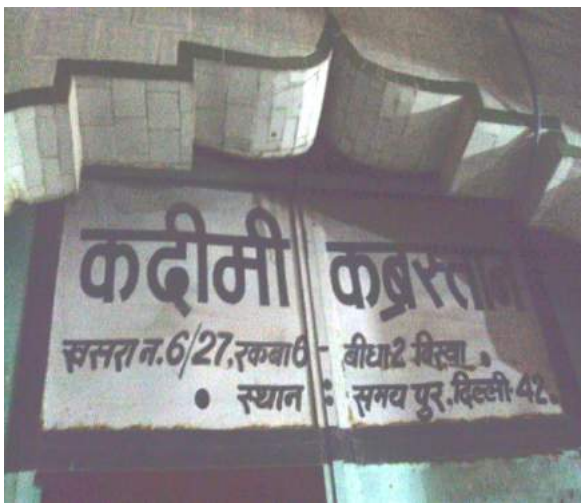 कदीमी कब्रस्तान
खसरा न. 6/27, रकबा 6 - बीघा 2 बिस्वा .
• स्थान : समय पुर, दिल्ली-42.